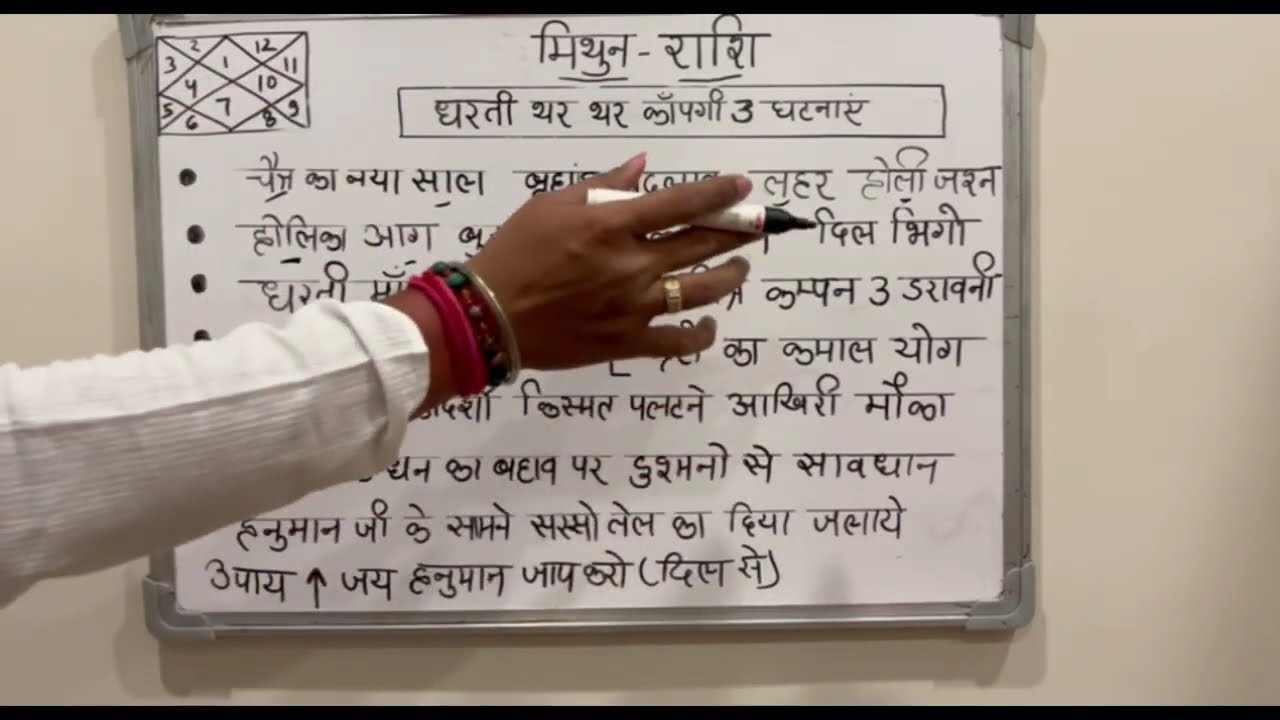 2 12
3 1 11
4 10
5 7 9
6 8
मिथुन - राशि
धरती थर थर काँपगी 3 घटनाएं
चैत्र का नया साल लहर होली जश्न
होलिका आग दिल भिगो
धरती माँ कम्पन 3 डरावनी
का कमाल योग
किस्मत पलटने आखिरी मौका
धन का बहाव पर दुश्मनो से सावधान
हनुमान जी के सामने सरसो तेल का दिया जलाये
उपाय ↑ जय हनुमान जाप करो (दिल से)